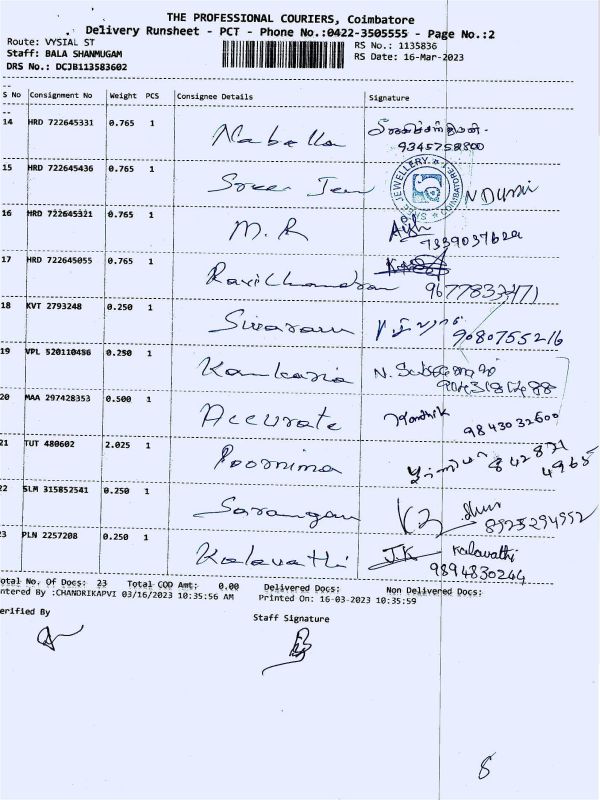 THE PROFESSIONAL COURIERS, Coimbatore
Delivery Runsheet - PCT - Phone No.:0422-3505555 - Page No.:2
Route: VYSIAL ST
RS No.: 1135836
Staff: BALA SHANMUGAM
RS Date: 16-Mar-2023
DRS No.: DCJB113583602
S No Consignment No Weight PCS Consignee Details Signature
14 HRD 722645331 0.765 1 Nabella
9345758800
15 HRD 722645436 0.765 1 Sree Jew N Durai
JEWELLERY
COIMBATORE
16 HRD 722645321 0.765 1 M. R
7339037622
17 HRD 722645055 0.765 1 Ravi Chandran 9677833471
18 KVT 2793248 0.250 1 Sivaram 9080755216
19 VPL 520110486 0.250 1 Kankaria N.
20 MAA 297428353 0.500 1 Accurate
9843032600
21 TUT 480602 2.025 1 Poornima 842871
4965
22 SLM 315852541 0.250 1 Sarangan
8925294552
23 PLN 2257208 0.250 1 Kalavathi J.K Kalavathi
9894830244
otal No. Of Docs: 23 Total COD Amt: 0.00 Delivered Docs: Non Delivered Docs:
ntered By :CHANDRIKAPVI 03/16/2023 10:35:56 AM Printed On: 16-03-2023 10:35:59
erified By
Staff Signature
8